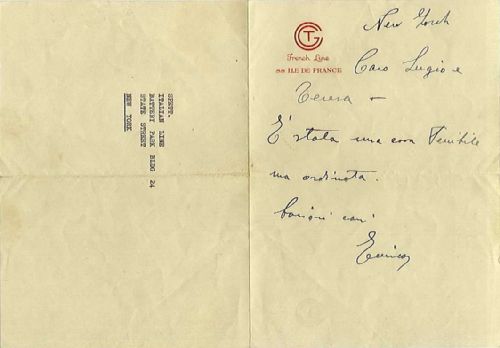 SPETT.
ITALIAN LINE
BATTERY PARK BLDG 24
STATE STREET
NEW YORK
CGT
French Line
SS ILE DE FRANCE
New York
Caro Luigi e
Teresa -
È stata una cosa terribile
ma ordinata.
cari